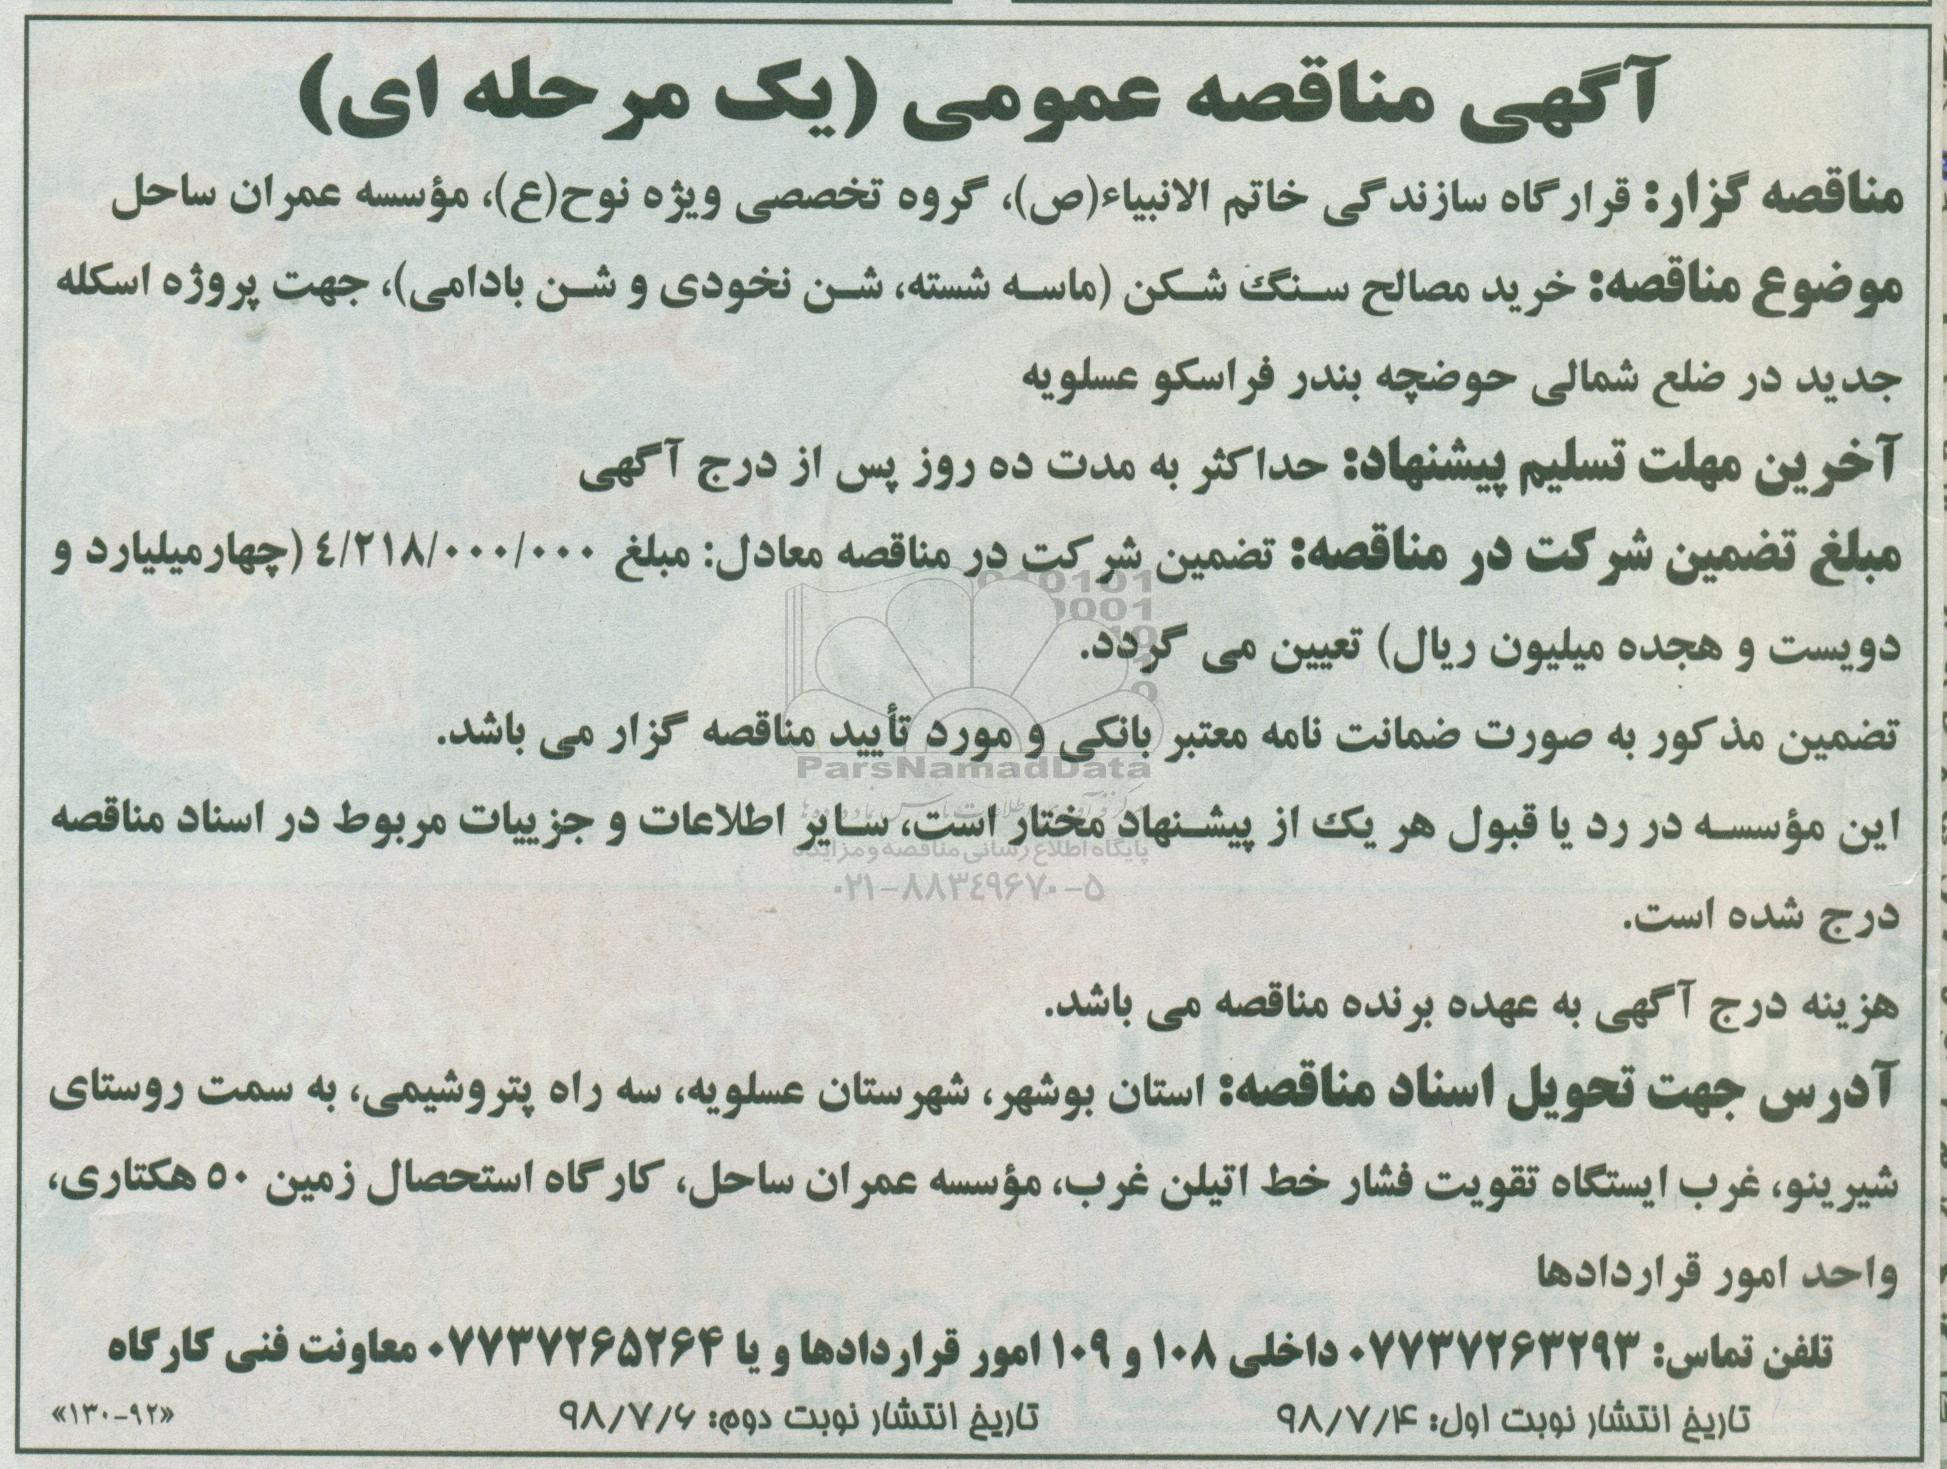 آگهی مناقصه عمومی (یک مرحله ای)
مناقصه گزار: قرارگاه سازندگی خاتم الانبیاء(ص)، گروه تخصصی ویژه نوح(ع)، مؤسسه عمران ساحل
موضوع مناقصه: خرید مصالح سنگ شکن (ماسه شسته، شن نخودی و شن بادامی)، جهت پروژه اسکله
جدید در ضلع شمالی حوضچه بندر فراسکو عسلویه
آخرین مهلت تسلیم پیشنهاد: حداکثر به مدت ده روز پس از درج آگهی
مبلغ تضمین شرکت در مناقصه: تضمین شرکت در مناقصه معادل: مبلغ ۴/۲۱۸/۰۰۰/۰۰۰ (چهارمیلیارد و
دویست و هجده میلیون ریال) تعیین می گردد.
تضمین مذکور به صورت ضمانت نامه معتبر بانکی و مورد تأیید مناقصه گزار می باشد.
ParsNamadData
این مؤسسه در رد یا قبول هر یک از پیشنهاد مختار است، سایر اطلاعات و جزییات مربوط در اسناد مناقصه
پایگاه اطلاع رسانی مناقصه و مزایده
۰۲۱-۸۸۳۴۹۶۷۰-۵
درج شده است.
هزینه درج آگهی به عهده برنده مناقصه می باشد.
آدرس جهت تحویل اسناد مناقصه: استان بوشهر، شهرستان عسلویه، سه راه پتروشیمی، به سمت روستای
شیرینو، غرب ایستگاه تقویت فشار خط اتیلن غرب، مؤسسه عمران ساحل، کارگاه استحصال زمین ۵۰ هکتاری،
واحد امور قراردادها
تلفن تماس: ۰۷۷۳۷۲۶۳۲۹۳ داخلی ۱۰۸ و ۱۰۹ امور قراردادها و یا ۰۷۷۳۷۲۶۵۲۶۴ معاونت فنی کارگاه
تاریخ انتشار نوبت اول: ۹۸/۷/۴ تاریخ انتشار نوبت دوم: ۹۸/۷/۶ «۱۳۰-۹۲»